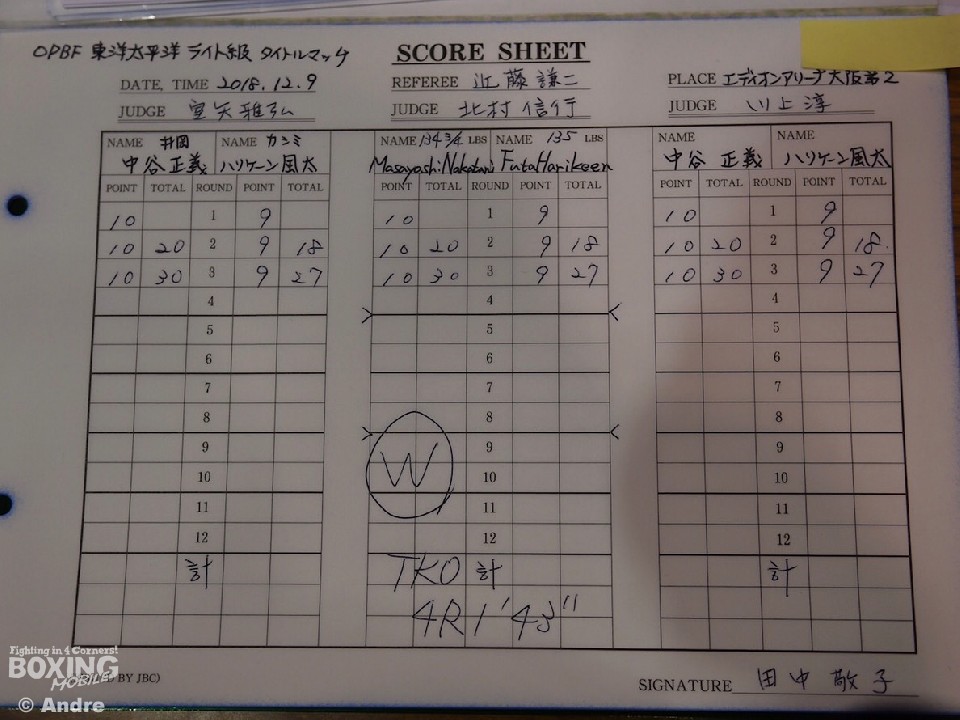 OPBF 東洋太平洋 ライト級 タイトルマッチ
SCORE SHEET
DATE, TIME 2018.12.9 REFEREE 近藤謙二 PLACE エディオンアリーナ大阪第2
JUDGE 宮矢雅弘 JUDGE 北村信行 JUDGE 川上淳
NAME 井岡 NAME カシミ NAME 134 3/4 LBS NAME 135 LBS NAME NAME
中谷正義 ハリケーン風太 Masayoshi Nakatani Futa Harikeen 中谷 正義 ハリケーン風太
POINT TOTAL ROUND POINT TOTAL POINT TOTAL ROUND POINT TOTAL POINT TOTAL ROUND POINT TOTAL
10 1 9 10 1 9 10 1 9
10 20 2 9 18 10 20 2 9 18 10 20 2 9 18.
10 30 3 9 27 10 30 3 9 27 10 30 3 9 27
4 4 4
5 5 5
6 6 6
7 7 7
8 8 8
9 9 9
W
10 10 10
11 11 11
12 12 12
計 TKO 計 計
4R1'43"
Fighting in 4 Corners!
BOXING
MOBILE
BY JBC)
SIGNATURE 田中敬子
© Andre